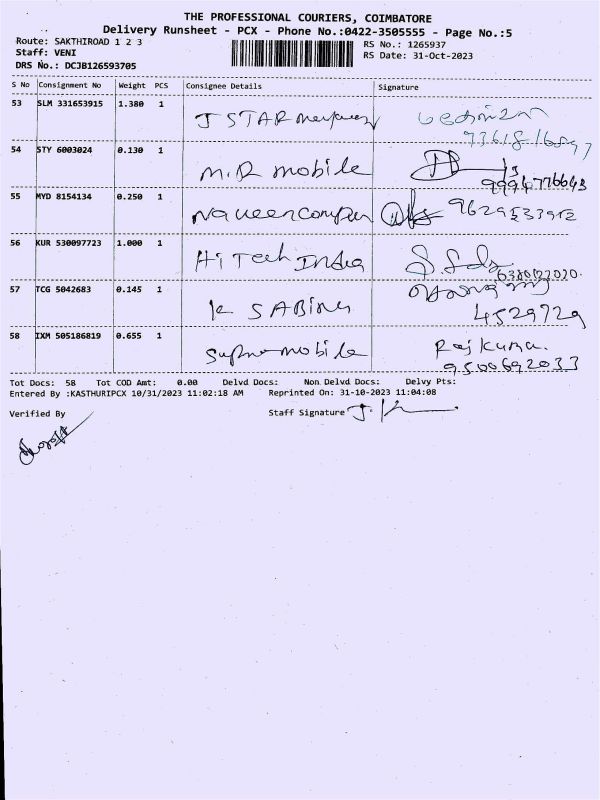 THE PROFESSIONAL COURIERS, COIMBATORE
Delivery Runsheet - PCX - Phone No.:0422-3505555 - Page No.:5
Route: SAKTHIROAD 1 2 3
RS No.: 1265937
Staff: VENI
RS Date: 31-Oct-2023
DRS No.: DCJB126593705
S No Consignment No Weight PCS Consignee Details Signature
53 SLM 331653915 1.380 1 J STAR
54 STY 6003024 0.130 1 M.R mobile
9994776643
55 MYD 8154134 0.250 1 naveen 9629533912
56 KUR 530097723 1.000 1 Hi Tech India
57 TCG 5042683 0.145 1 K SABine
4529729
58 IXM 505186819 0.655 1 mobile Raj Kuma.
9500692033
Tot Docs: 58 Tot COD Amt: 0.00 Delvd Docs: Non Delvd Docs: Delvy Pts:
Entered By :KASTHURIPCX 10/31/2023 11:02:18 AM Reprinted On: 31-10-2023 11:04:08
Verified By Staff Signature